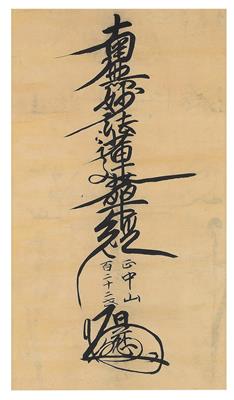 南無妙法蓮華經
正中山
百二十二世
日